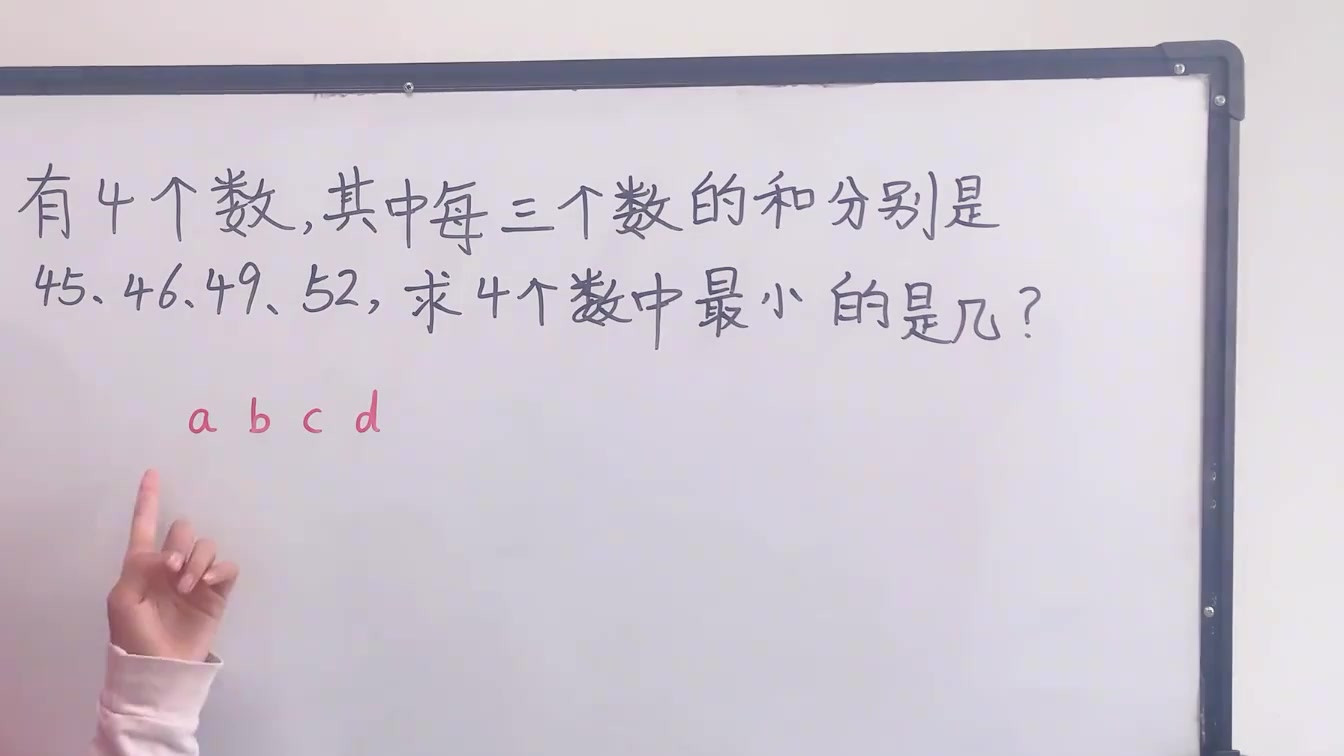 有4个数,其中每三个数的和分别是
45、46、49、52,求4个数中最小的是几?
a b c d